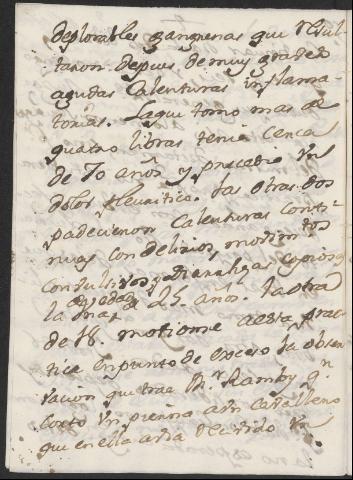 deplorables gangrenas que resul-
taron depues de muy grabes
agudas Calenturas inflama-
torias. La qu tomo mas de
quatro libras tenia cerca
de 70 años y precedio un
dolor Pleuritico. las otras dos
padecieron Calenturas conti-
nuas con delirios, mobim.tos
convulsivos y diarreas copiosas
la una, de edad de 25. años. la otra
de 18. motivome a esta prac-
tica en punto de exceso la obser-
bacion que trae M.r Ramby q.n
corto una pierna a un Cavallero
que en ella avia recivido un